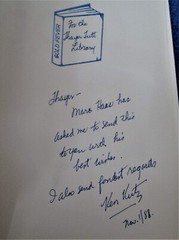 GOLD FEVER
For the
Thayer Tutt
Library
Thayer—
Marc Haas has
asked me to send this
to you with his
best wishes.
I also send fondest regards
Ken Kutz
Nov. 1/88.